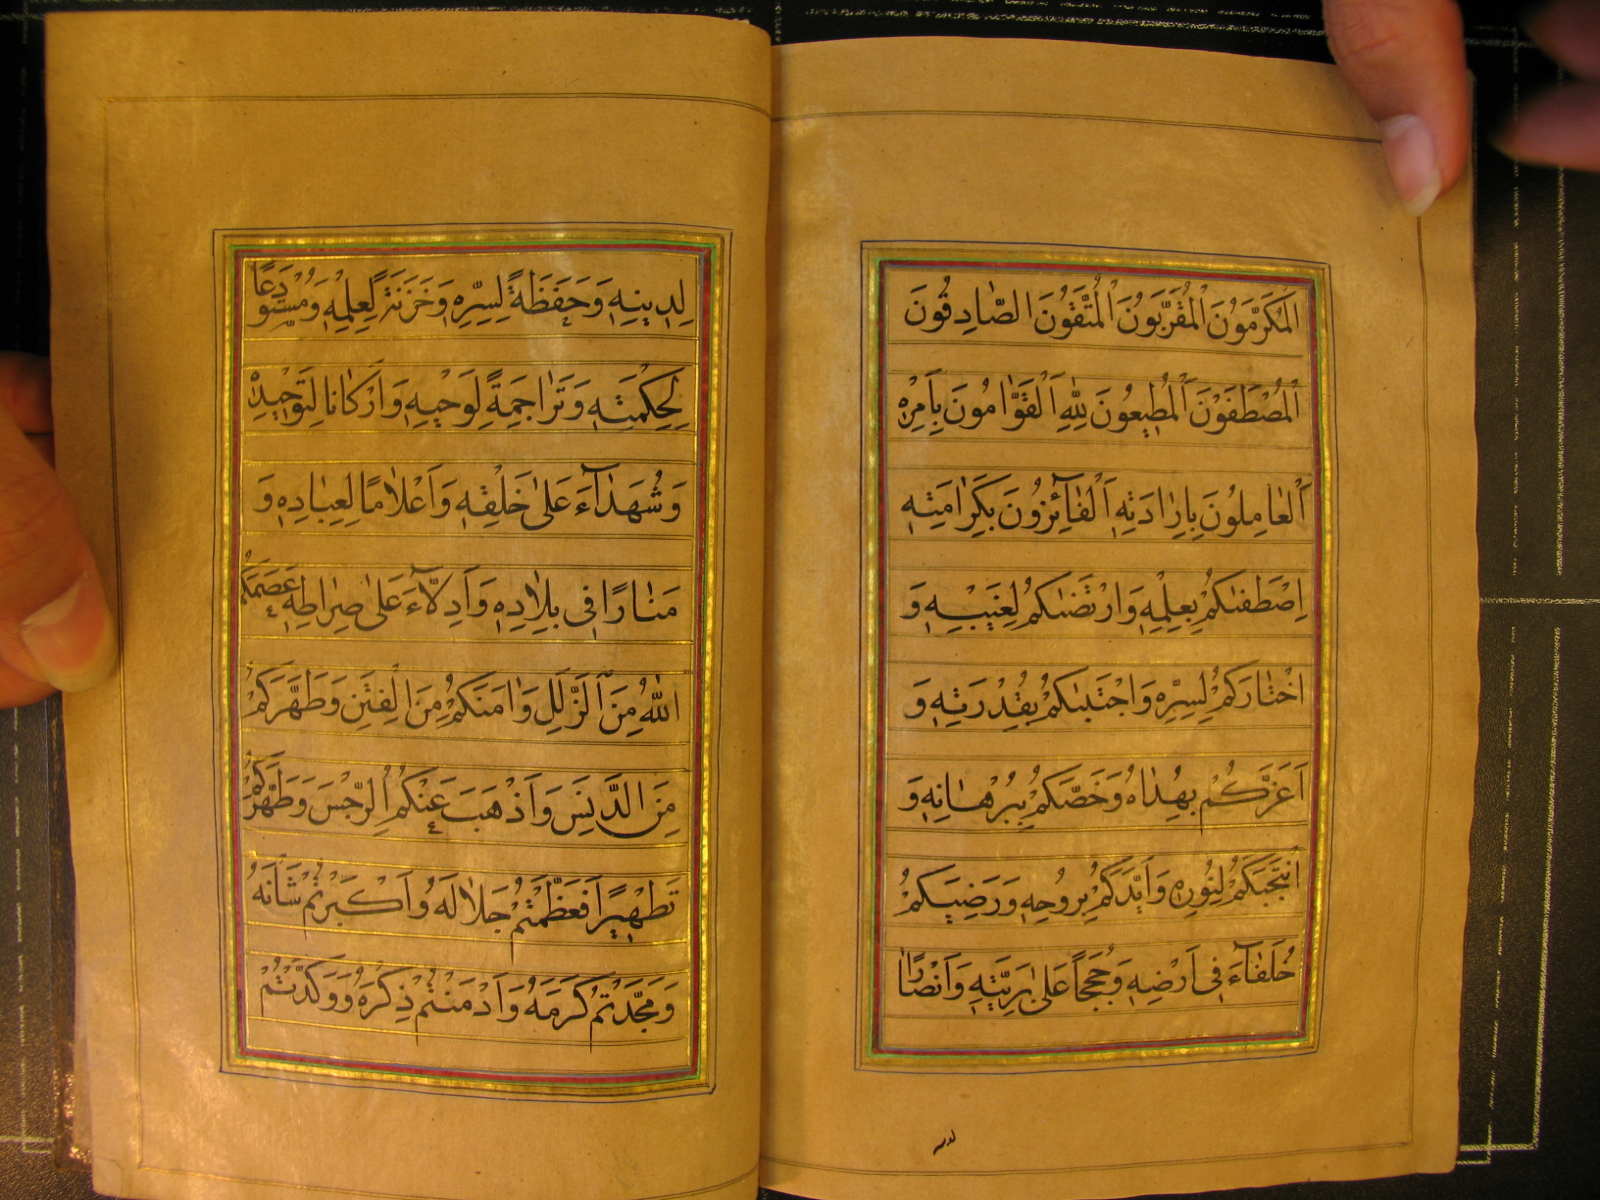 الْمُكَرَّمُونَ الْمُقَرَّبُونَ الْمُتَّقُونَ الصَّادِقُونَ
الْمُصْطَفَوْنَ اَلْمُطٖيعُونَ لِلّٰهِ اَلْقَوّٰامُونَ بِاَمْرِهٖ
اَلْعٰامِلُونَ بِاِرٰادَتِهٖ اَلْفٰٓائِزُونَ بِكَرٰامَتِهٖ
اِصْطَفٰىكُمْ بِعِلْمِهٖ وَارْتَضٰىكُمْ لِغَيْبِهٖ وَ
اخْتٰارَكُمْ لِسِرِّهٖ وَاجْتَبٰىكُمْ بِقُدْرَتِهٖ وَ
اَعَزَّكُمْ بِهُدٰاهُ وَخَصَّكُمْ بِبُرْهٰانِهٖ وَ
انْتَجَبَكُمْ لِنُورِهٖ وَاَيَّدَكُمْ بِرُوحِهٖ وَرَضِيَكُمْ
خُلَفٰٓاءَ فٖى اَرْضِهٖ وَحُجَجاً عَلىٰ بَرِيَّتِهٖ وَاَنْصٰارًا
لدينه
لِدٖينِهٖ وَحَفَظَةً لِسِرِّهٖ وَخَزَنَةً لِعِلْمِهٖ وَمُسْتَوْدَعًا
لِحِكْمَتِهٖ وَتَرٰاجِمَةً لِوَحْيِهٖ وَاَرْكٰانا لِتَوْحٖيدِهٖ
وَشُهَدٰٓاءَ عَلىٰ خَلْقِهٖ وَاَعْلٰامًا لِعِبٰادِهٖ وَ
مَنٰارًا فٖى بِلٰادِهٖ وَاَدِلّٰٓاءَ عَلىٰ صِرٰاطِهٖ عَصَمَكُمُ
اللّٰهُ مِنَ الزَّلَلِ وَاٰمَنَكُمْ مِنَ الْفِتَنِ وَطَهَّرَكُمْ
مِنَ الدَّنَسِ وَاَذْهَبَ عَنْكُمُ الرِّجْسَ وَطَهَّرَكُمْ
تَطْهٖيرًا فَعَظَّمْتُمْ جَلٰالَهُ وَاَكْبَرْتُمْ شَأْنَهُ
وَمَجَّدْتُمْ كَرَمَهُ وَاَدْمَنْتُمْ ذِكْرَهُ وَوَكَّدْتُمْ